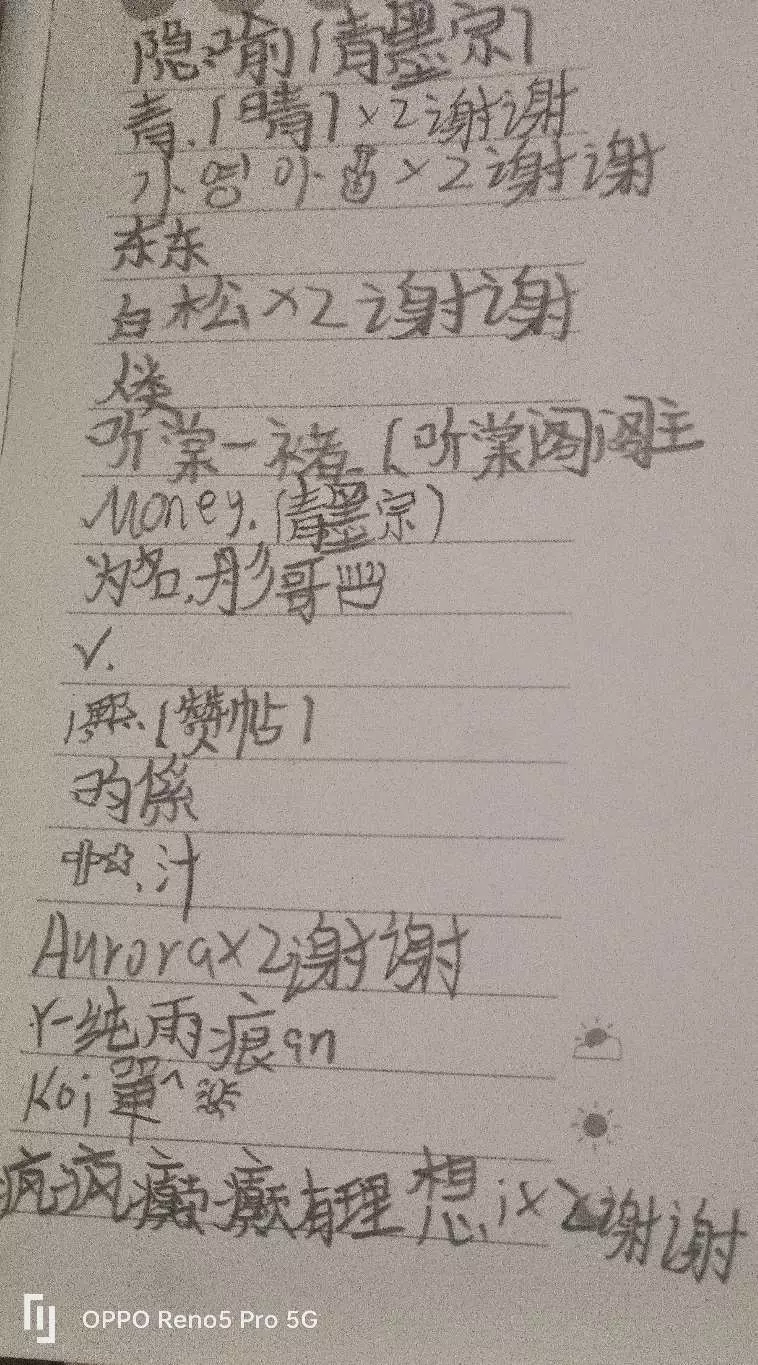 隐喻[青墨宗]
青.[晴]×2谢谢
가영아 ×2谢谢
东东
白松×2谢谢
听棠一褚.[听棠阁]阁主
Money.(青墨宗)
为名.彤哥
√.
.[赞帖]
汁
Aurora×2谢谢
r-纯雨痕an
Koi
疯疯癫癫有理想.i×2谢谢
OPPO Reno5 Pro 5G